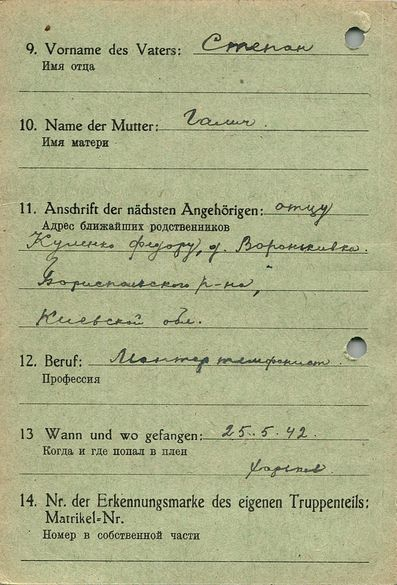 9. Vorname des Vaters: Степан
Имя отца
10. Name der Mutter: Галич
Имя матери
11. Anschrift der nächsten Angehörigen: отцу
Адрес ближайших родственников
Куленко Федору, д. Вороньковка
Бориспольского р-на,
Киевской обл.
12. Beruf: Монтер телефонист
Профессия
13 Wann und wo gefangen: 25.5.42.
Когда и где попал в плен
Харьков
14. Nr. der Erkennungsmarke des eigenen Truppenteils:
Matrikel=Nr.
Номер в собственной части